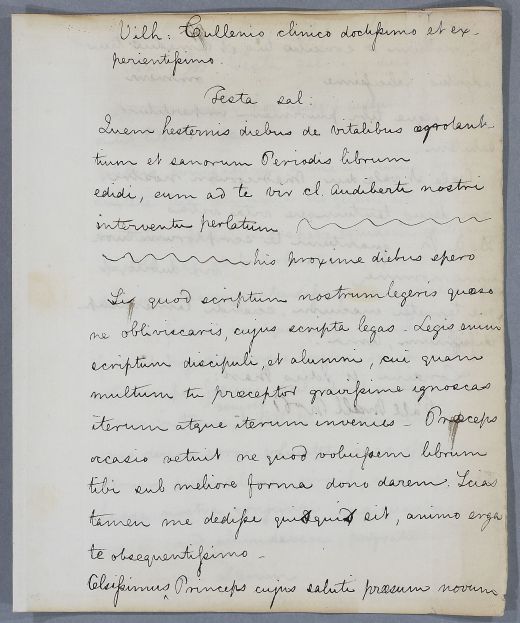 Vilh. Cullenio clinico doctissimo et ex-
perientissimo.
Testa sal:
Quem hesternis diebus de vitalibus ægrotant-
tium et sanorum Periodis librum
edidi, eum ad te vir cl. Audiberti nostri
interventu perlatum
his proxime diebus spero
quod scriptum nostrum legeris quæso
ne obliviscaris, cujus scripta legas - Legis enim
scriptum discipuli, et alumni, cui quam
multum tu præceptor gravissime ignoscas
iterum atque iterum invenies - Præceps
occasio vetuit ne quod voluissem librum
tibi sub meliore forma dono darem. Scias
tamen me dedisse quidquid sit, animo erga
te obsequentissimo -
Celsissimus, Princeps cujus saluti præsum novum